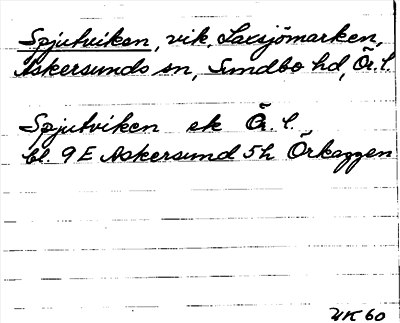 Spjutviken, vik, Laxsjömarken,
Askersunds sn, Sundbo hd, Ör. l.
Spjutviken ek Ör. l.
bl. 9 E Askersund 5h Örkaggen
UK 60